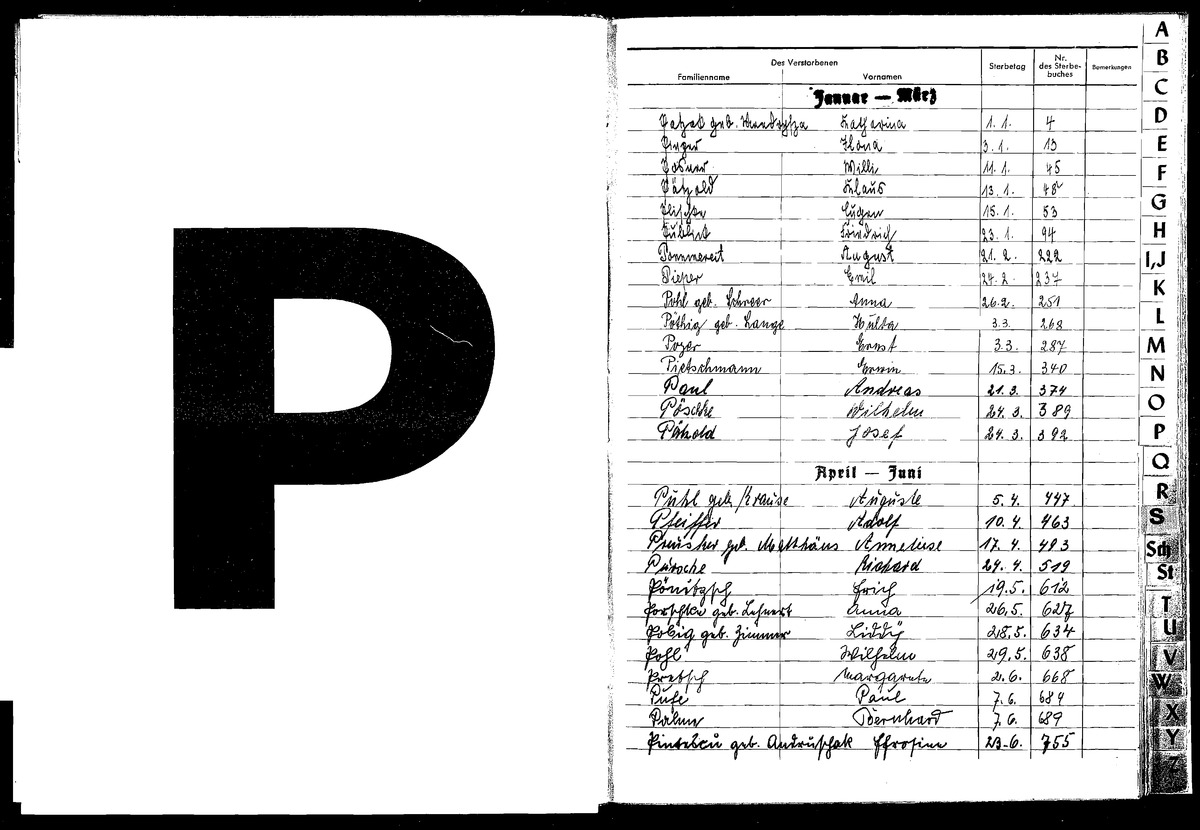 P
Des Verstorbenen
Familienname Vornamen Sterbetag Nr. des Sterbebuches Bemerkungen
Januar — März
geb. Katharina 1. 1. 4
Ilona 3. 1. 13
Posner Willi 11. 1. 45
Pätzold Klaus 13. 1. 48
Plischke Eugen 15. 1. 53
Friedrich 23. 1. 94
Pommereit August 21. 2. 222
Pieper Emil 24. 2. 237
Pohl geb. Schreer Anna 26. 2. 251
Pöthig geb. Lange Hulda 3. 3. 268
Poser Ernst 3. 3. 287
Pietschmann Erwin 15. 3. 340
Paul Andreas 21. 3. 374
Pöschke Wilhelm 24. 3. 389
Pätzold Josef 24. 3. 392
April — Juni
Puhl geb. Krause Auguste 5. 4. 447
Pfeiffer Adolf 10. 4. 463
Preusker geb. Matthäus Anneliese 17. 4. 493
Pursche Richard 24. 4. 519
Pönitzsch Erich 19. 5. 612
Porschke geb. Lehnert Anna 26. 5. 627
Pobig geb. Zimmer Liddy 28. 5. 634
Pohl Wilhelm 29. 5. 638
Pretsch Margarete 2. 6. 668
Pufe Paul 7. 6. 684
Palme Bernhard 7. 6. 689
Pintescu geb. Andruschak Efrosine 23. 6. 755
A
B
C
D
E
F
G
H
I,J
K
L
M
N
O
P
Q
R
S
Sch
St
T
U
V
W
X
Y
Z